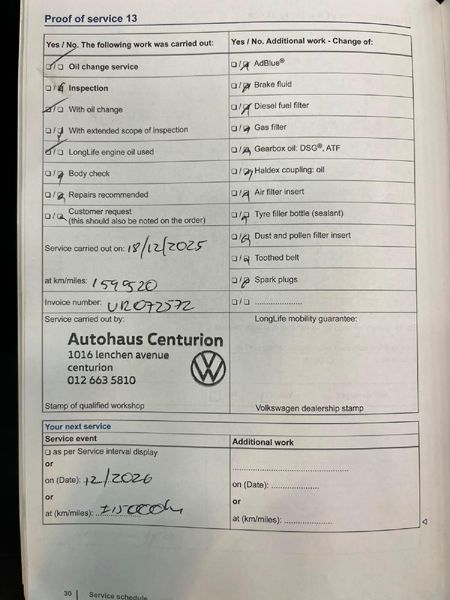 Proof of service 13
Yes / No. The following work was carried out:
Oil change service
Inspection
With oil change
With extended scope of inspection
LongLife engine oil used
Body check
Repairs recommended
Customer request
(this should also be noted on the order)
Service carried out on: 18/12/2025
at km/miles: 159520
Invoice number:
Service carried out by:
Autohaus Centurion
1016 lenchen avenue
centurion
012 663 5810
Stamp of qualified workshop
Yes / No. Additional work - Change of:
AdBlue®
Brake fluid
Diesel fuel filter
Gas filter
Gearbox oil: DSG®, ATF
Haldex coupling: oil
Air filter insert
Tyre filler bottle (sealant)
Dust and pollen filter insert
Toothed belt
Spark plugs
LongLife mobility guarantee:
Volkswagen dealership stamp
Your next service
Service event
as per Service interval display
or
on (Date): 12/2026
or
at (km/miles):
Additional work
on (Date):
or
at (km/miles):
30 | Service schedule